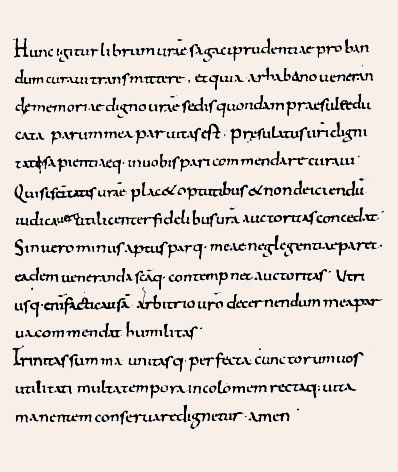 Hunc igitur librum urae sagaci prudentiae proban
dum curaui transmittere, et quia arhabano ueneran
dememoriae digno urae sedis quondam praesule edu
cata parum mea paruitas est. praesulatus uri digni
tati sapientiaeq. inuobis pari commendare curaui.
Qui si scitatis urae placet optutibus et non deiciendu
iudicauerit utilicenter fidelibus ura auctoritas concedat.
Sin uero minus aptus parq. meae neglegentiae paret.
eadem ueneranda scaq. contempnet auctoritas. Utri
usq. enim facti causa arbitrio uro decernendum mea par
ua commendat humilitas.
Trinitas summa unitasq. perfecta cunctorum uos
utilitati multa tempora incolomem rectaq: uita
manentem conseruare dignetur. amen.